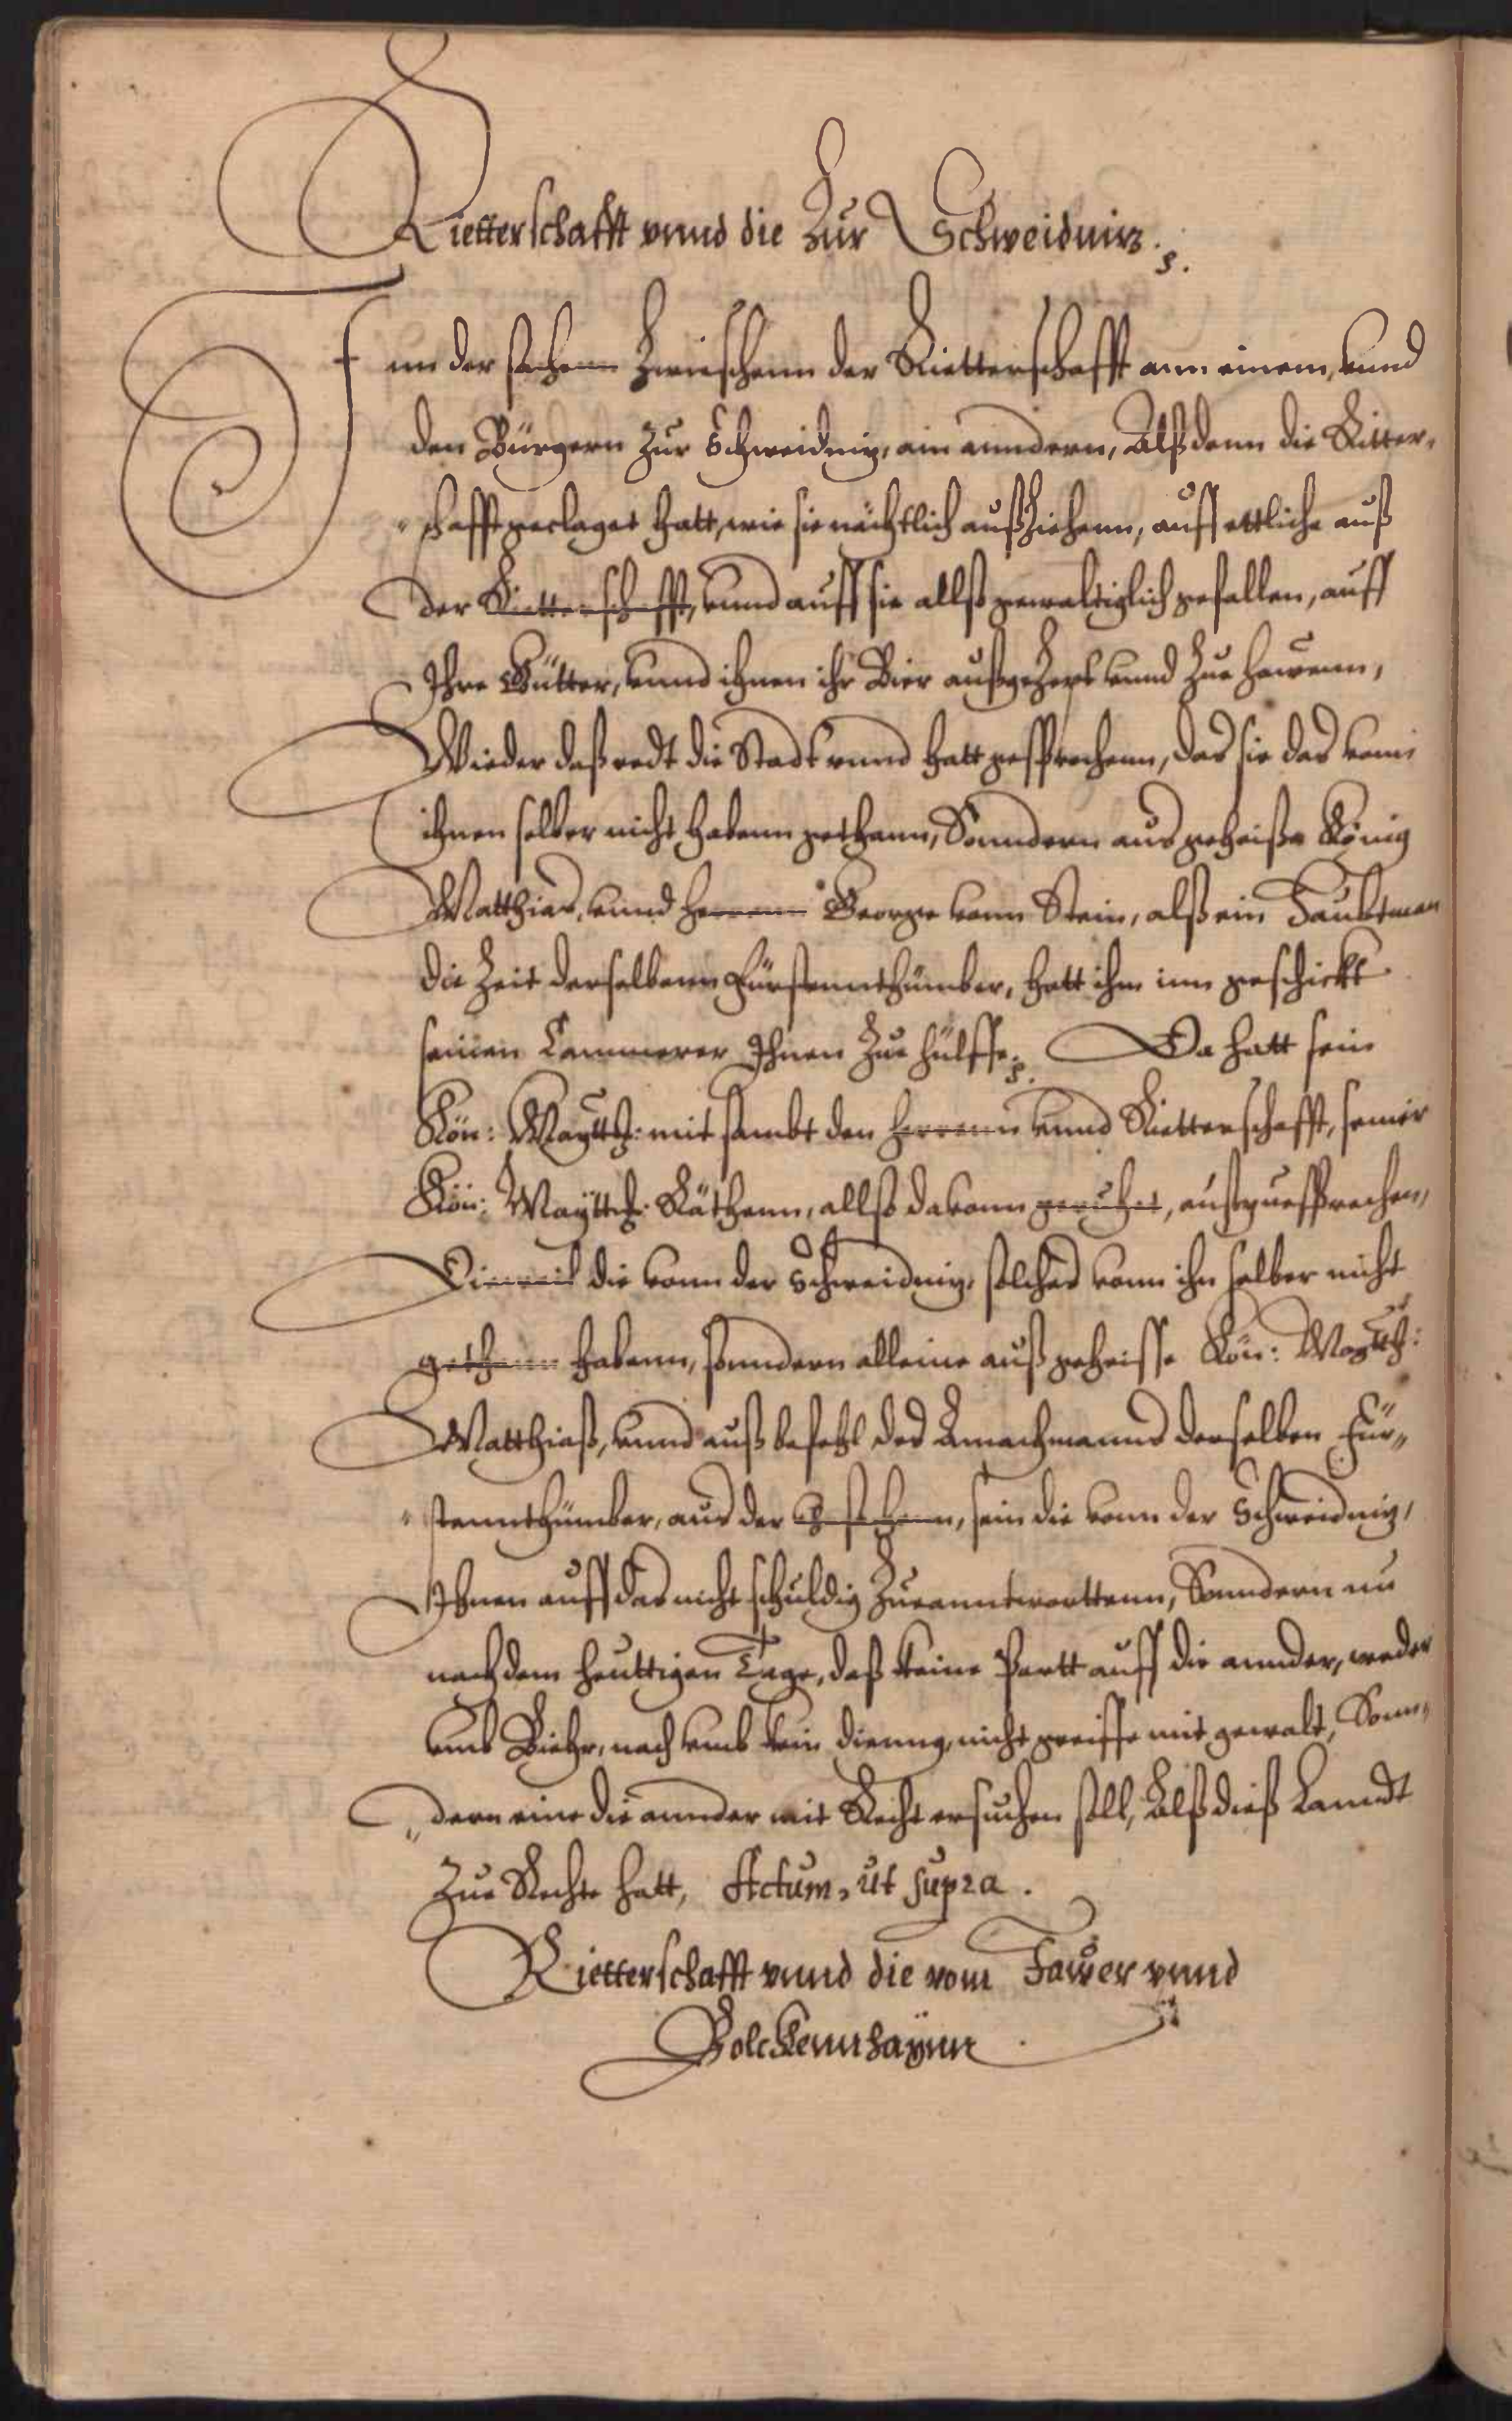 Rietterschafft vnnd die Zur Schweidnitz.
Inn der sachenn Zwieschenn der Rietterschafft ann einem, vnnd
den Bürgern Zur Schweidnitz, am anndern, Alß denn die Ritter-
schafft geclaget hatt, wie sie nächtlich außziehenn, auff ettliche auß
der Ritterschafft, vnnd auff sie allß gewaltiglich gefallen, auff
Ihre Gütter, vnnd ihnen ihr Bier vnnd Zue hawenn,
Wieder daß redt die Stadt vnnd hatt gesprochenn, das sie das vonn
ihnen selber nicht habenn gethann, Sonndern aus geheiße König
Matthias, vnnd herrnn George vonn Stein, alß ein Haubtman
die Zeit derselbenn Fürstennthümber, hatt ihm inn geschickt
seinen Cammerer Ihnen Zue hülffe. Da hatt sein
Kön: Maÿtt: mit sambt den herrenn vnnd Rietterschafft, seiner
Kön: Maÿtt: Räthenn, allß dauonn geruhet, außgesprochen,
Dieweil die vonn der Schweidnitz, solches vonn ihn selber nicht
gethann habenn, sonndern alleine auß geheisse Kön: Maÿtt:
Matthiaß, vnnd auß befehl des Anwachmanns derselben Für-
stennthümber, aus der vrsachenn, sein die vonn der Schweidnitz,
Ihnen auff das nicht schuldig Zueanntworttenn, Sonndern nu
nach dem heuttigen Tage, daß keine Partt auff die annder, weder
vmb Biehr, noch vmb kein dienng, nicht greiffe mit gewalt, Sonn-
dern eine die annder mit Recht ersuchen soll, Alß dieß Lanndt
Zue Rechte hatt, Actum, ut supra.
Rietterschafft vnnd die vom Jawer vnnd
Bolckennhaÿnn